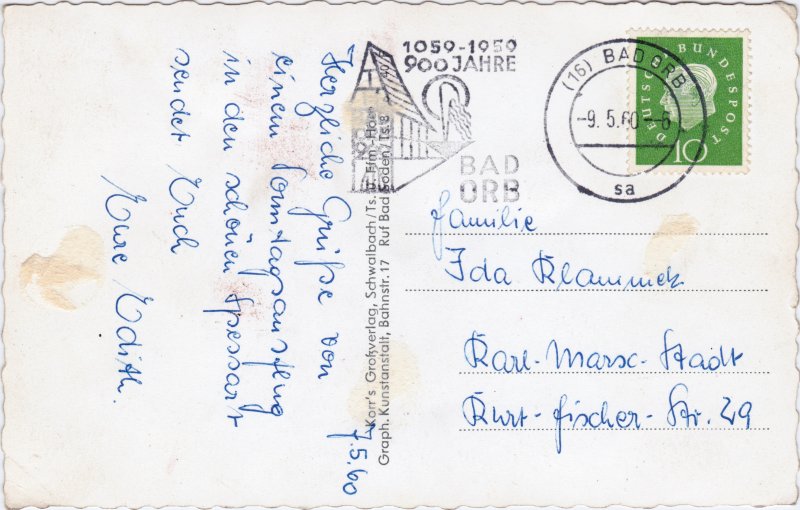 Herzliche Grüße von
einem Sonntagsausflug
in den schönen Spessart
sendet Euch
Eure Edith.
7.5.60
Korr's Großverlag, Schwalbach/Ts. u. Ffm.-Hoe
Graph. Kunstanstalt, Bahnstr. 17 Ruf Bad Soden/Ts. 8
1059-1959
900 JAHRE
BAD
ORB
(16) BAD ORB
-9.5.60-6
sa
DEUTSCHE BUNDESPOST
10
Familie
Ida Klammek
Karl-Marx-Stadt
Kurt-Fischer-Str. 29